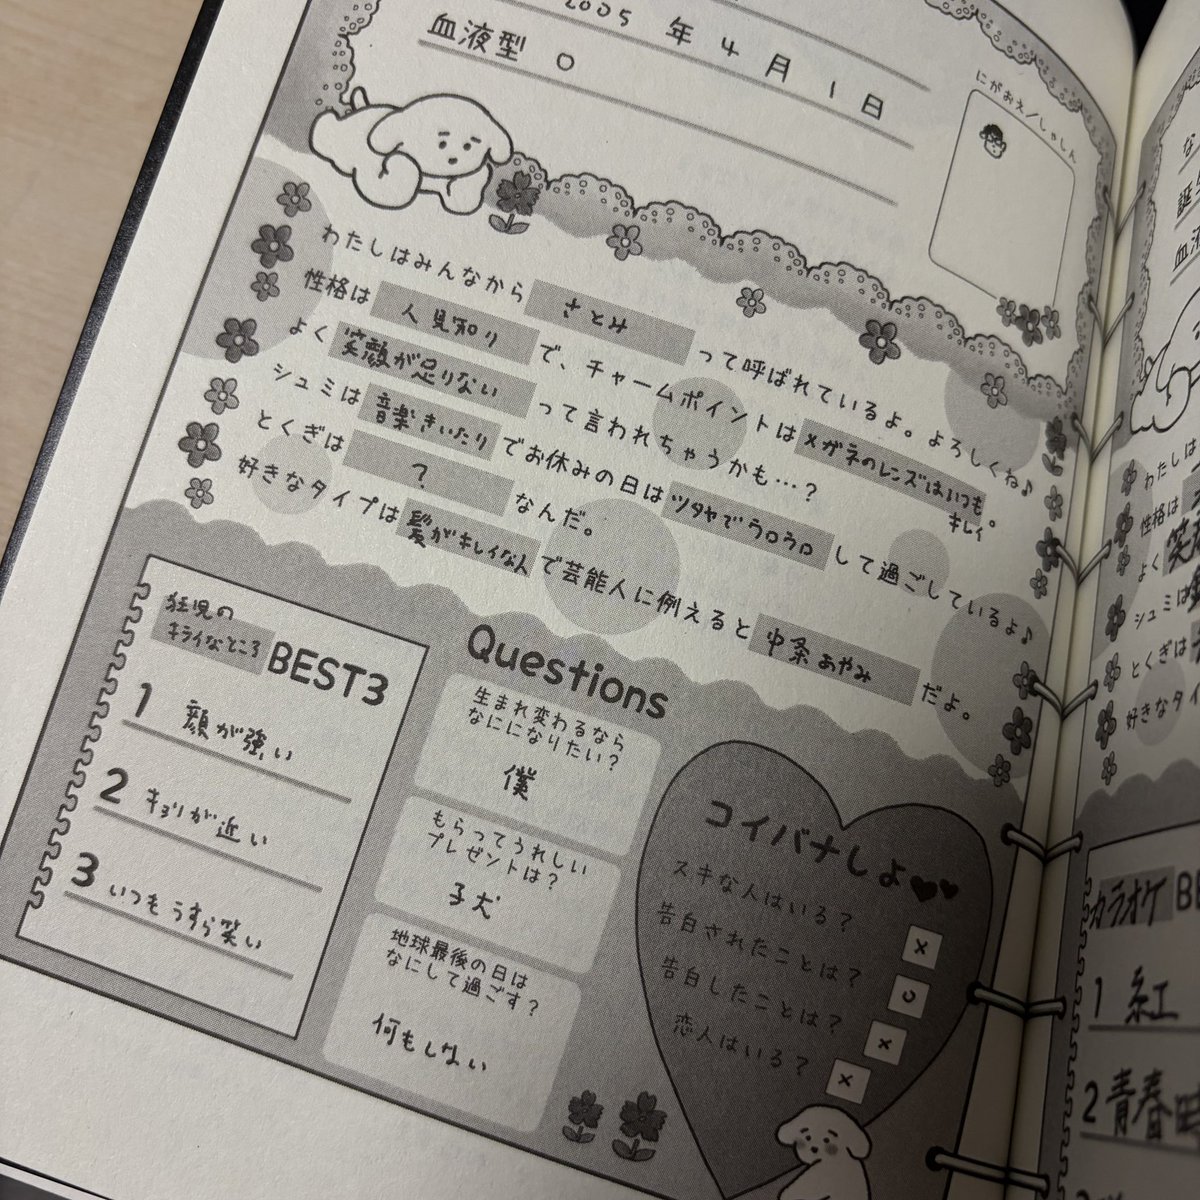 2005 年 4 月 1 日
血液型 O
にがおえ/しゃしん
わたしはみんなから さとみ って呼ばれているよ。よろしくね♪
性格は 人見知り で、チャームポイントは メガネのレンズはいつもキレイ。
よく 笑顔が足りない って言われちゃうかも…?
シュミは 音楽きいたり でお休みの日は ツタヤでうロうロ して過ごしているよ♪
とくぎは ? なんだ。
好きなタイプは 髪がキレイな人 で芸能人に例えると 中条あやみ だよ。
狂児の
キライなところ BEST3
1 顔が強い
2 キョリが近い
3 いつもうすら笑い
Questions
生まれ変わるなら
なにになりたい?
僕
もらってうれしい
プレゼントは?
子犬
地球最後の日は
なにして過ごす?
何もしない
コイバナしよ♥♥
スキな人はいる? ×
告白されたことは? ○
告白したことは? ×
恋人はいる? ×
な
誕
血液
わたしは
性格は
よく 笑
シュミは
とくぎは
好きなタイ
カラオケ BE
1 紅
2 青春時